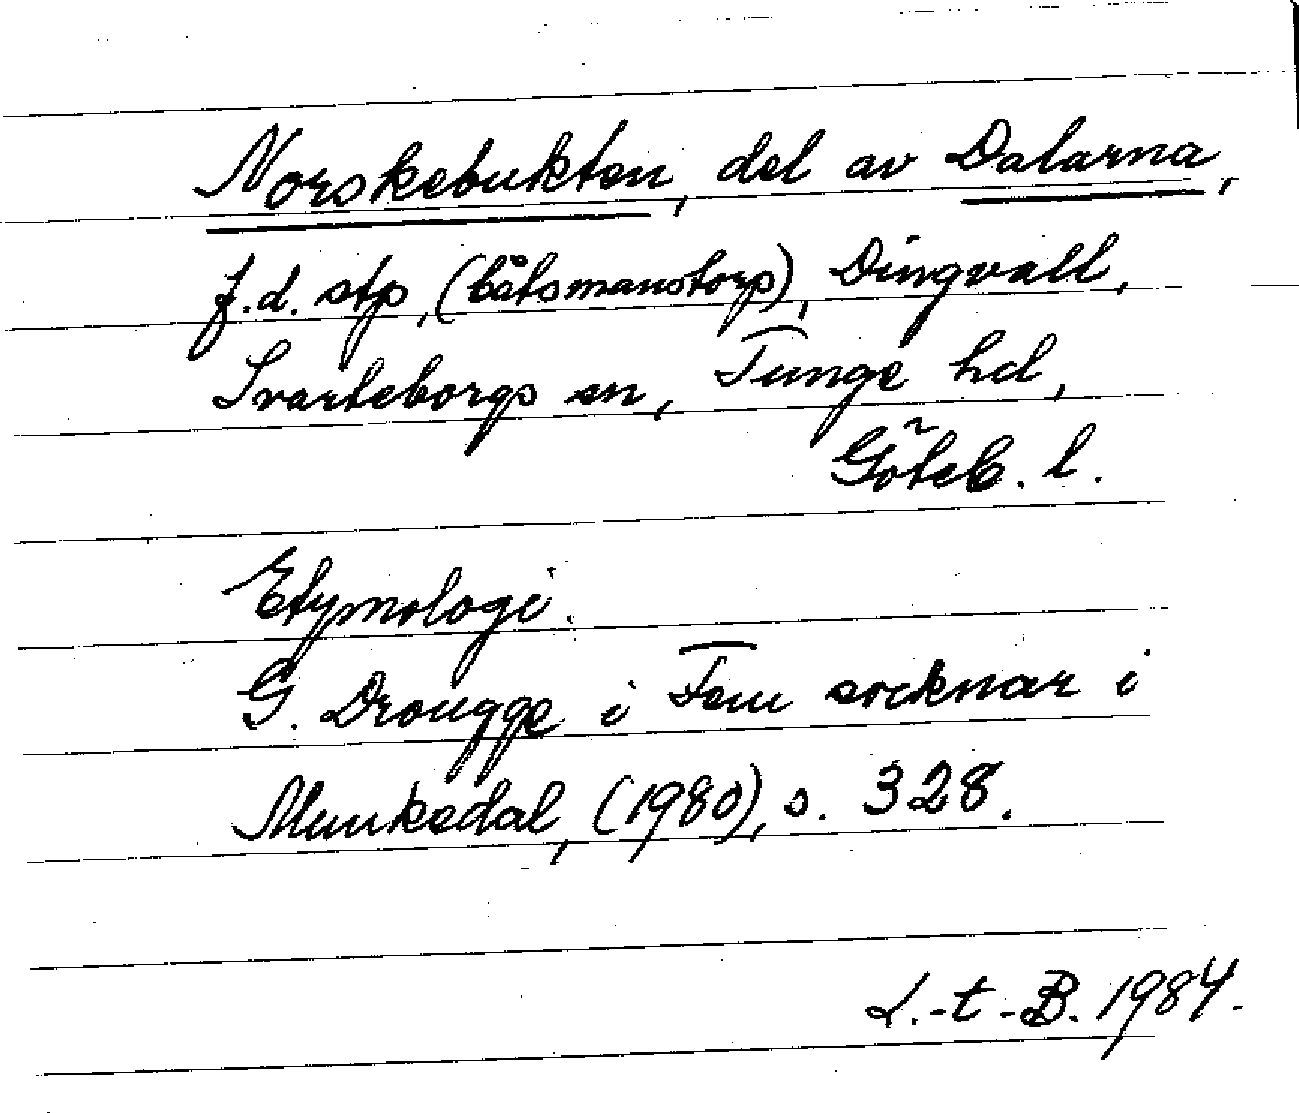 Norskebukten, del av Dalarna,
f.d. stp, (båtsmanstorp), Dingvall,
Svarteborgs sn, Tunge hd,
Göteb. l.
Etymologi.
G. Drougge i Fem socknar i
Munkedal, (1980), s. 328.
L.-t-B. 1984.